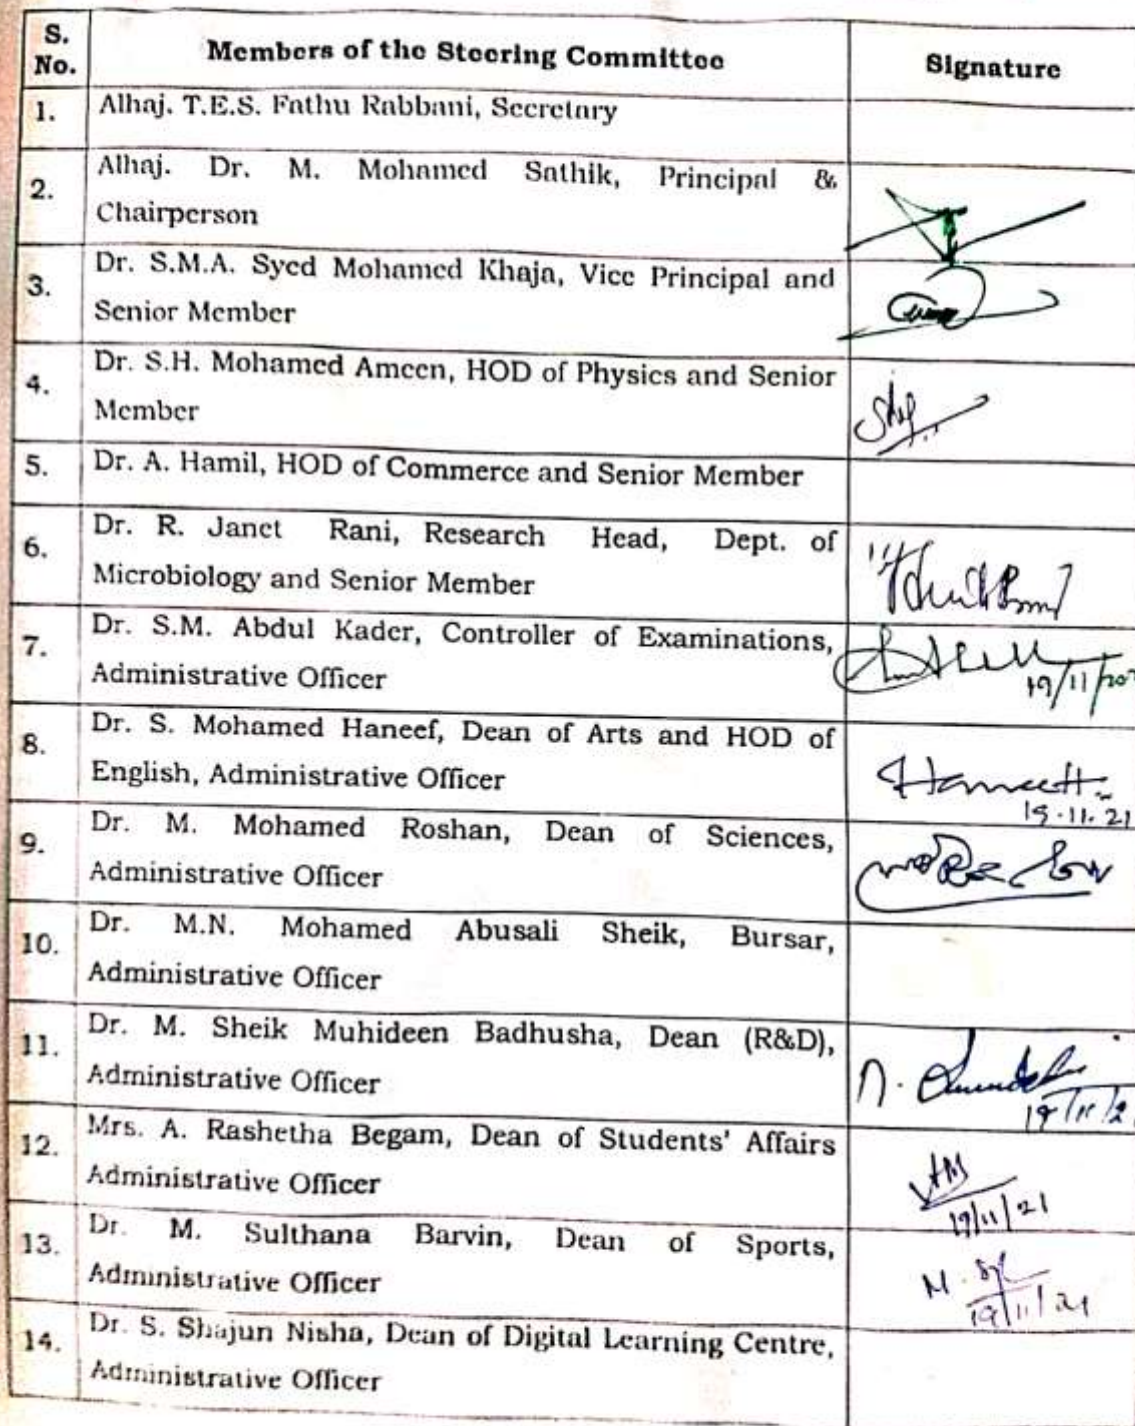 S. No. Members of the Steering Committee Signature
1. Alhaj. T.E.S. Fathu Rabbani, Secretary
2. Alhaj. Dr. M. Mohamed Sathik, Principal &
Chairperson
3. Dr. S.M.A. Syed Mohamed Khaja, Vice Principal and
Senior Member
4. Dr. S.H. Mohamed Ameen, HOD of Physics and Senior
Member
5. Dr. A. Hamil, HOD of Commerce and Senior Member
6. Dr. R. Janet Rani, Research Head, Dept. of
Microbiology and Senior Member
7. Dr. S.M. Abdul Kader, Controller of Examinations,
Administrative Officer 19/11/202
8. Dr. S. Mohamed Haneef, Dean of Arts and HOD of
English, Administrative Officer Haneef
19.11.21
9. Dr. M. Mohamed Roshan, Dean of Sciences,
Administrative Officer
10. Dr. M.N. Mohamed Abusali Sheik, Bursar,
Administrative Officer
11. Dr. M. Sheik Muhideen Badhusha, Dean (R&D),
Administrative Officer 19/11/2
12. Mrs. A. Rashetha Begam, Dean of Students' Affairs
Administrative Officer 19/11/21
13. Dr. M. Sulthana Barvin, Dean of Sports,
Administrative Officer 19/11/21
14. Dr. S. Shajun Nisha, Dean of Digital Learning Centre,
Administrative Officer